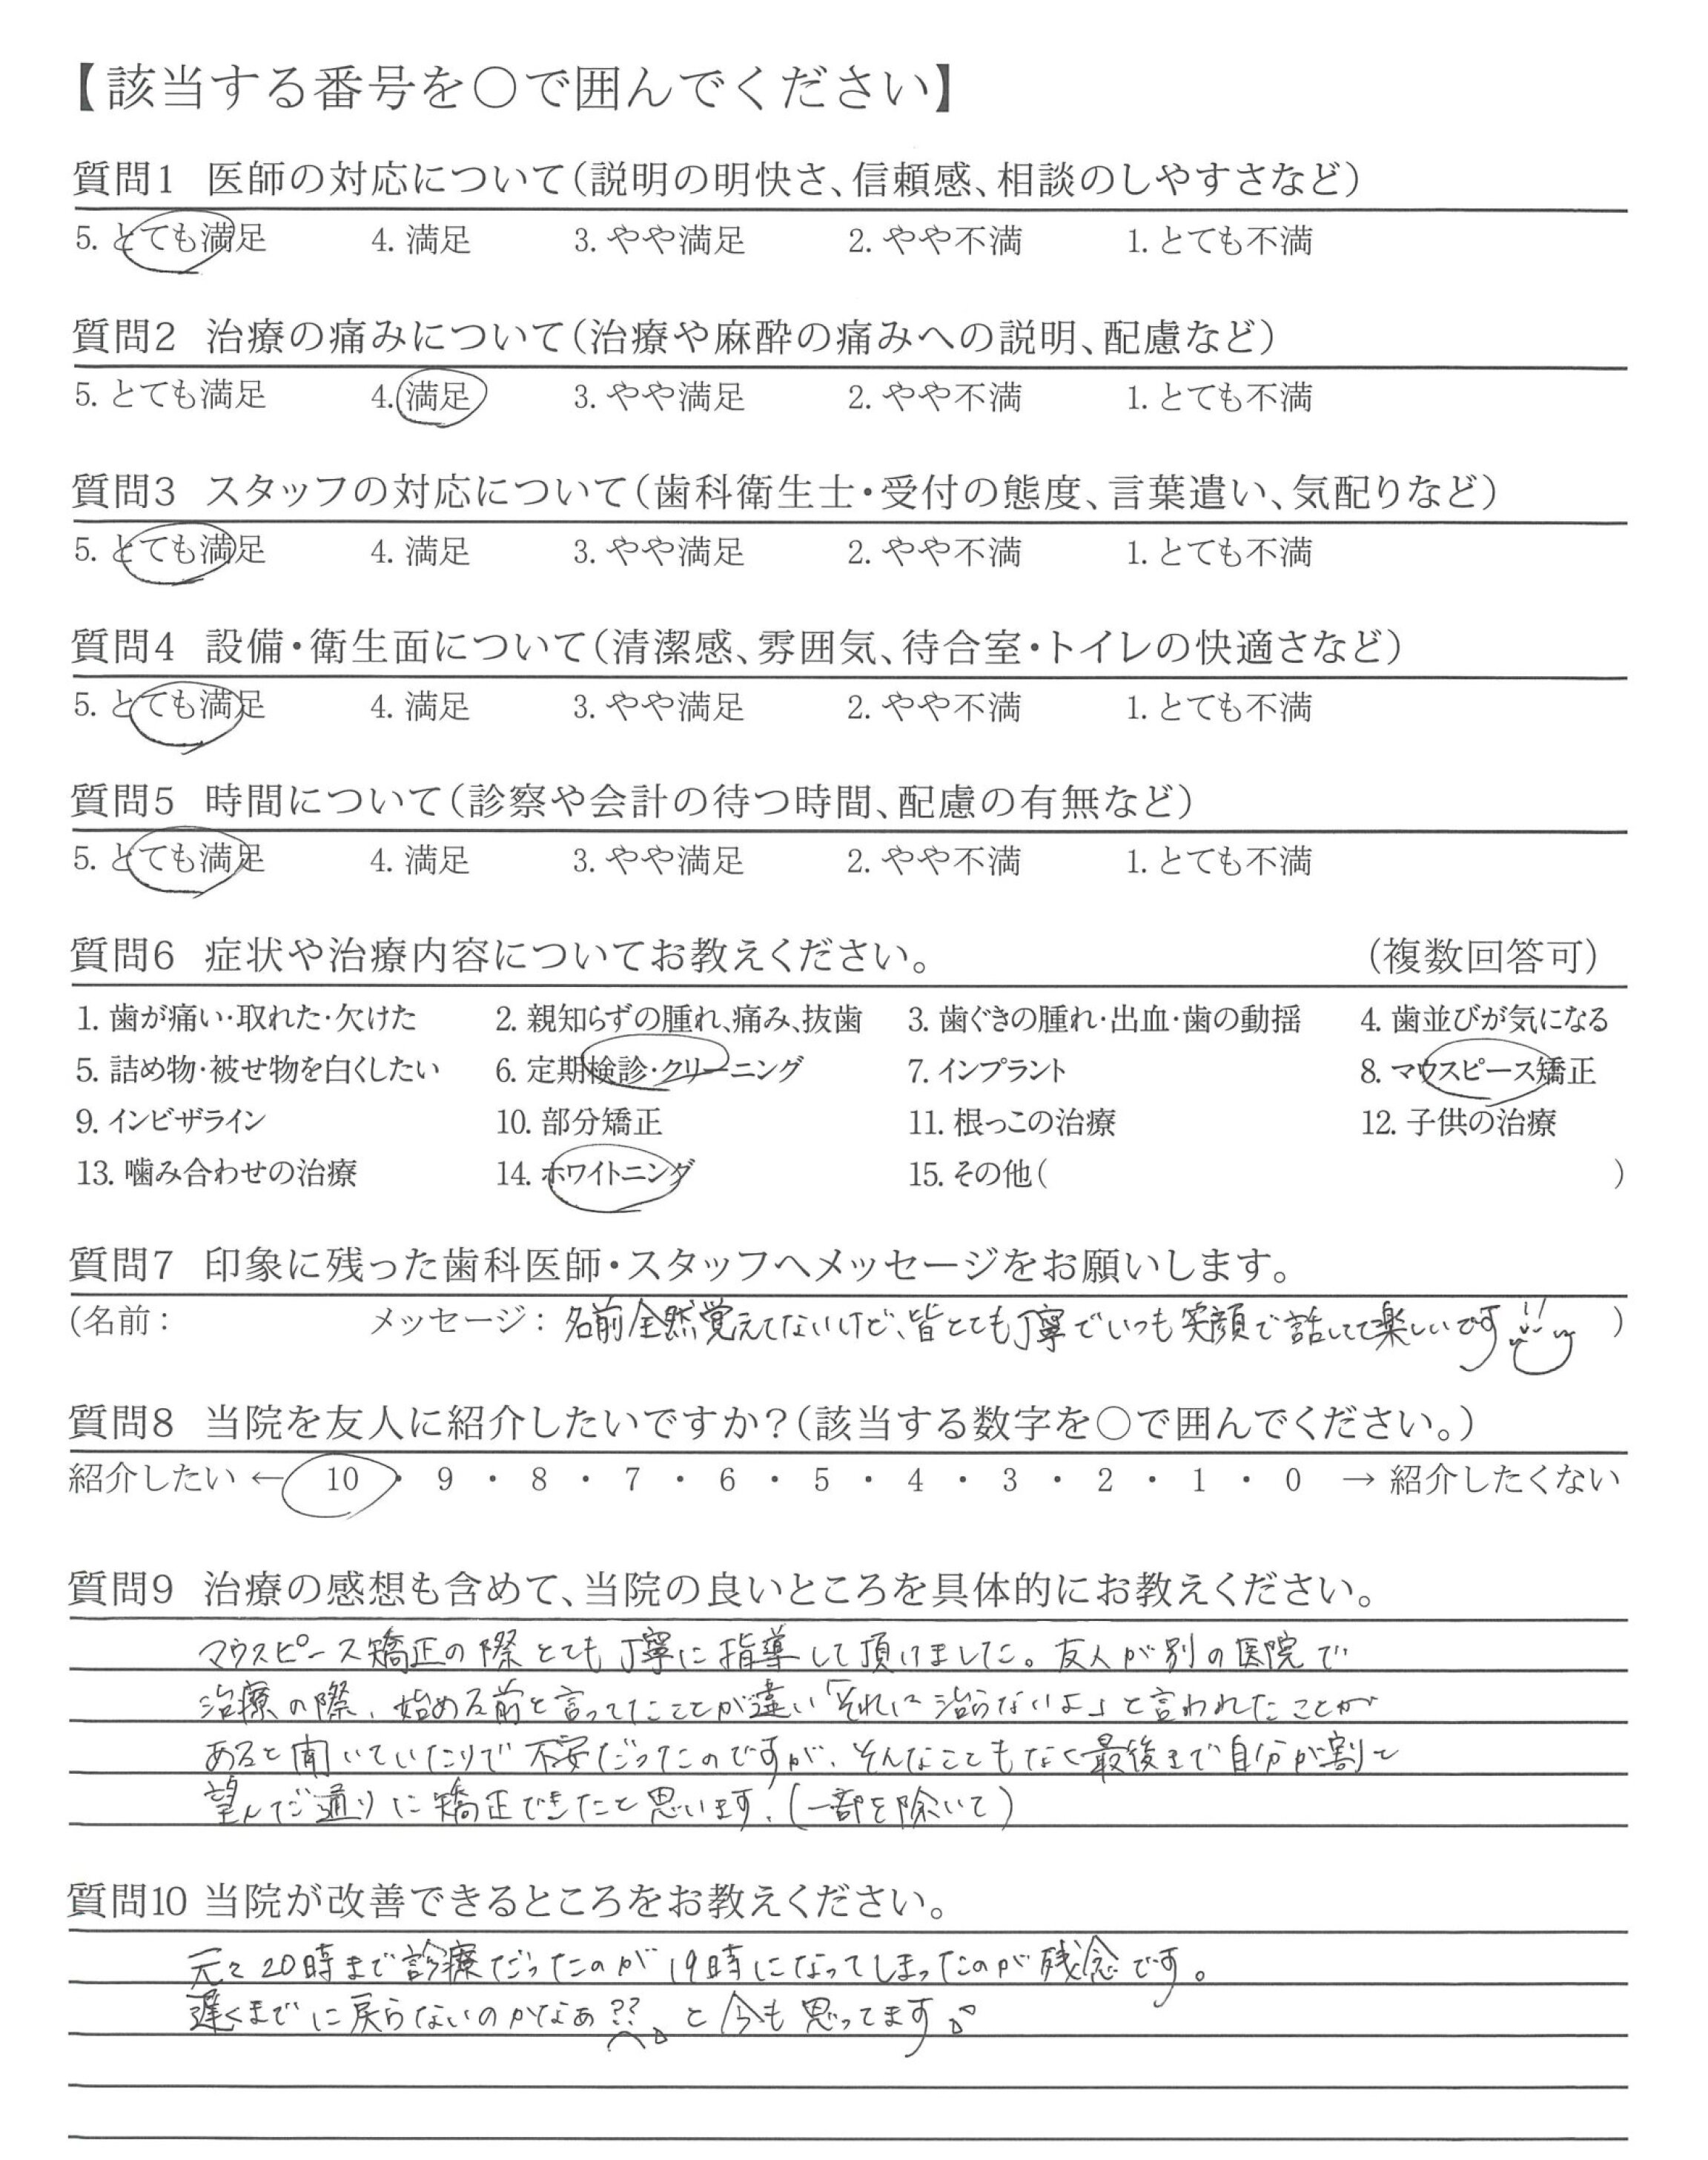 【該当する番号を〇で囲んでください】
質問1 医師の対応について（説明の明快さ、信頼感、相談のしやすさなど）
5. とても満足 4. 満足 3. やや満足 2. やや不満 1. とても不満
質問2 治療の痛みについて（治療や麻酔の痛みへの説明、配慮など）
5. とても満足 4. 満足 3. やや満足 2. やや不満 1. とても不満
質問3 スタッフの対応について（歯科衛生士・受付の態度、言葉遣い、気配りなど）
5. とても満足 4. 満足 3. やや満足 2. やや不満 1. とても不満
質問4 設備・衛生面について（清潔感、雰囲気、待合室・トイレの快適さなど）
5. とても満足 4. 満足 3. やや満足 2. やや不満 1. とても不満
質問5 時間について（診察や会計の待つ時間、配慮の有無など）
5. とても満足 4. 満足 3. やや満足 2. やや不満 1. とても不満
質問6 症状や治療内容についてお教えください。 （複数回答可）
1. 歯が痛い・取れた・欠けた 2. 親知らずの腫れ、痛み、抜歯 3. 歯ぐきの腫れ・出血・歯の動揺 4. 歯並びが気になる
5. 詰め物・被せ物を白くしたい 6. 定期検診・クリーニング 7. インプラント 8. マウスピース矯正
9. インビザライン 10. 部分矯正 11. 根っこの治療 12. 子供の治療
13. 噛み合わせの治療 14. ホワイトニング 15. その他（ ）
質問7 印象に残った歯科医師・スタッフへメッセージをお願いします。
（名前： メッセージ：名前全然覚えてないけど、皆とても丁寧でいつも笑顔で話してて楽しいです!! ）
質問8 当院を友人に紹介したいですか？（該当する数字を〇で囲んでください。）
紹介したい ← 10 ・ 9 ・ 8 ・ 7 ・ 6 ・ 5 ・ 4 ・ 3 ・ 2 ・ 1 ・ 0 → 紹介したくない
質問9 治療の感想も含めて、当院の良いところを具体的にお教えください。
マウスピース矯正の際とても丁寧に指導して頂けました。友人が別の医院で
治療の際、始める前と言ってたことが違い「それは治らないよ」と言われたことが
あると聞いていたので不安だったのですが、そんなこともなく最後まで自分が割と
望んだ通りに矯正できたと思います。（一部を除いて）
質問10 当院が改善できるところをお教えください。
元々20時まで診療だったのが19時になってしまったのが残念です。
遅くまでに戻らないのかなぁ??と今も思ってます。